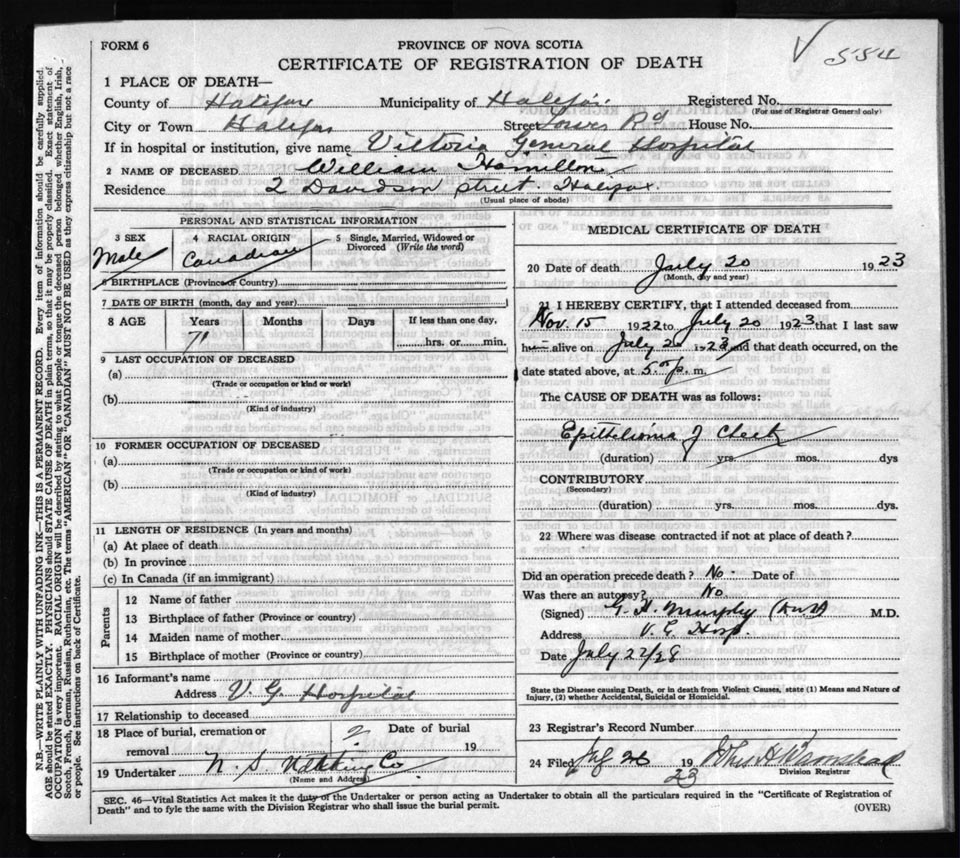 FORM 6
PROVINCE OF NOVA SCOTIA
554
CERTIFICATE OF REGISTRATION OF DEATH
1 PLACE OF DEATH—
County of Halifax Municipality of Halifax Registered No.
(For use of Registrar General only)
City or Town Halifax Street Tower Rd House No.
If in hospital or institution, give name Victoria General Hospital
2 NAME OF DECEASED William Hamilton
Residence 2 Davidson street. Halifax.
(Usual place of abode)
PERSONAL AND STATISTICAL INFORMATION
3 SEX 4 RACIAL ORIGIN 5 Single, Married, Widowed or Divorced (Write the word)
Male Canadian
6 BIRTHPLACE (Province or Country)
7 DATE OF BIRTH (month, day and year)
8 AGE Years Months Days If less than one day,
71 hrs. or min.
9 LAST OCCUPATION OF DECEASED
(a)
(Trade or occupation or kind or work)
(b)
(Kind of industry)
10 FORMER OCCUPATION OF DECEASED
(a)
(Trade or occupation or kind or work)
(b)
(Kind of industry)
11 LENGTH OF RESIDENCE (In years and months)
(a) At place of death
(b) In province
(c) In Canada (if an immigrant)
Parents
12 Name of father
13 Birthplace of father (Province or country)
14 Maiden name of mother
15 Birthplace of mother (Province or country)
16 Informant's name
Address V. G. Hospital
17 Relationship to deceased
18 Place of burial, cremation or Date of burial
removal ? 19
19 Undertaker N. S. Co
(Name and Address)
MEDICAL CERTIFICATE OF DEATH
20 Date of death July 20 1923
(Month, day and year)
21 I HEREBY CERTIFY, that I attended deceased from
Nov. 15 1922 to July 20 1923 that I last saw
h alive on July 20 1923 and that death occurred, on the
date stated above, at 5 p. m.
The CAUSE OF DEATH was as follows:
Epithelioma of Cheek
(duration) yrs. mos. dys
CONTRIBUTORY
(Secondary)
(duration) yrs. mos. dys.
22 Where was disease contracted if not at place of death?
Did an operation precede death? No. Date of
Was there an autopsy? No
(Signed) G. H. Murphy M.D.
Address V. G. Hosp.
Date July 22/28
State the Disease causing Death, or in death from Violent Causes, state (1) Means and Nature of
Injury, (2) whether Accidental, Suicidal or Homicidal.
23 Registrar's Record Number
24 Filed 26 1923
Division Registrar
SEC. 46—Vital Statistics Act makes it the duty of the Undertaker or person acting as Undertaker to obtain all the particulars required in the "Certificate of Registration of
Death" and to fyle the same with the Division Registrar who shall issue the burial permit.
(OVER)
N.B.—WRITE PLAINLY WITH UNFADING INK—THIS IS A PERMANENT RECORD. Every item of information should be carefully supplied.
AGE should be stated EXACTLY. PHYSICIANS should STATE CAUSE OF DEATH in plain terms, so that it may be properly classified. Exact statement of
OCCUPATION is very important. RACIAL ORIGIN will be described by stating to what people or tongue the deceased person belonged, whether English, Irish,
Scotch, French, German, Russian, Ruthenian, etc. The terms "AMERICAN" OR "CANADIAN" MUST NOT BE USED as they express citizenship but not a race
or people. See instructions on back of Certificate.